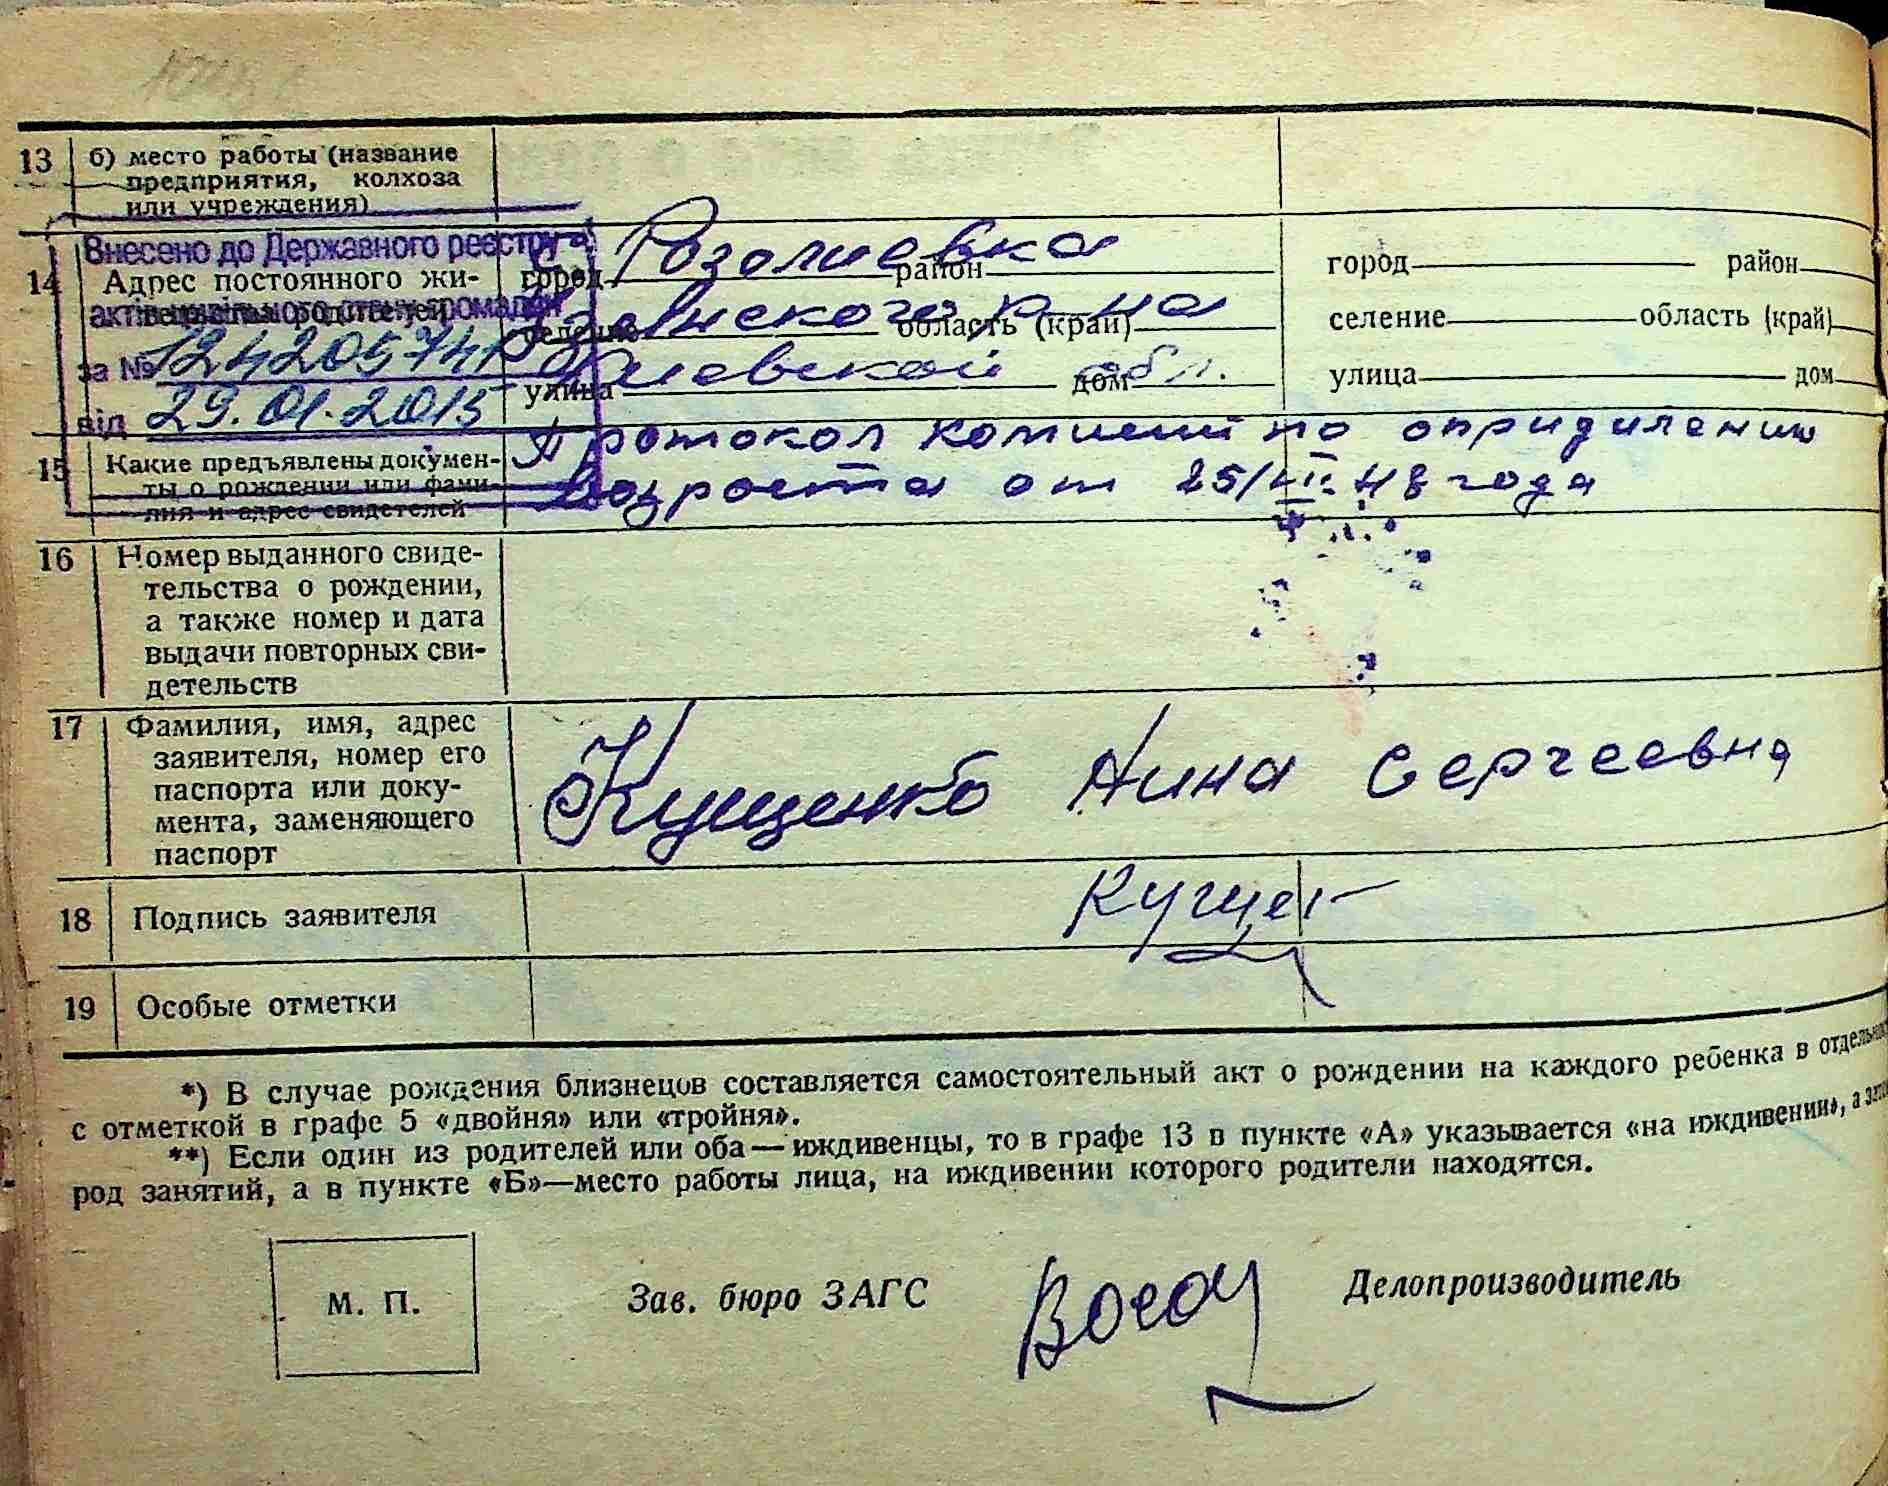 13 б) место работы (название
предприятия, колхоза
или учреждения)
Внесено до Державного реєстру
14 Адрес постоянного жи-
тельства родителей
актів цивільного стану громадян
за №
від 29.01.2015
город район
Розалиевка
селение область (край)
р-на
улица дом
Киевской обл.
город район
селение область (край)
улица дом
15 Какие предъявлены докумен-
ты о рождении или фами-
лия и адрес свидетелей
Протокол комисии по опридилению
возроста от 25/ 48 года
16 Номер выданного свиде-
тельства о рождении,
а также номер и дата
выдачи повторных сви-
детельств
17 Фамилия, имя, адрес
заявителя, номер его
паспорта или доку-
мента, заменяющего
паспорт
Кущенко Анна Сергеевна
18 Подпись заявителя
19 Особые отметки
*) В случае рождения близнецов составляется самостоятельный акт о рождении на каждого ребенка в
с отметкой в графе 5 «двойня» или «тройня».
**) Если один из родителей или оба — иждивенцы, то в графе 13 в пункте «А» указывается «на иждивении», а
род занятий, а в пункте «Б»—место работы лица, на иждивении которого родители находятся.
М. П.
Зав. бюро ЗАГС
Делопроизводитель